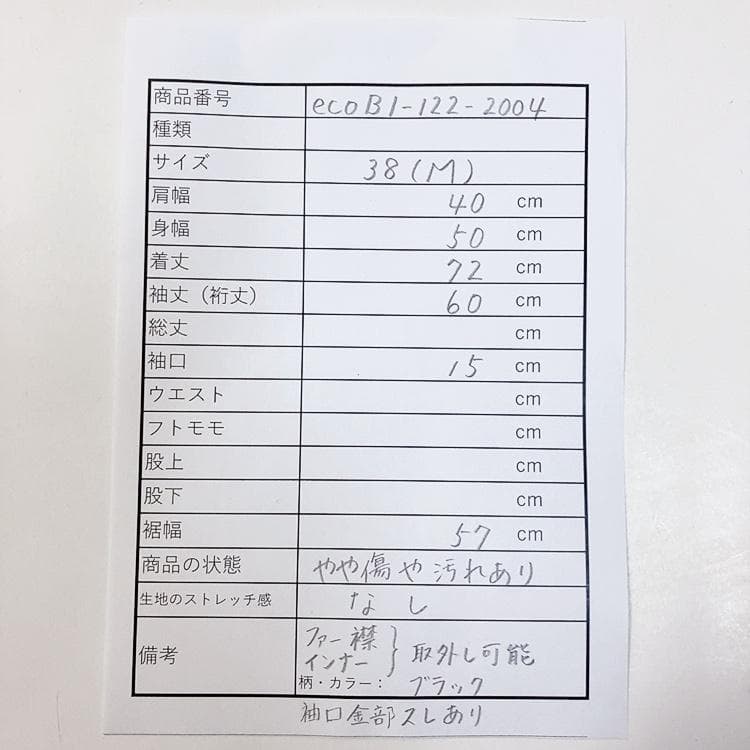 商品番号 ecoB1-122-2004
種類
サイズ 38(M)
肩幅 40 cm
身幅 50 cm
着丈 72 cm
袖丈（裄丈） 60 cm
総丈 cm
袖口 15 cm
ウエスト cm
フトモモ cm
股上 cm
股下 cm
裾幅 57 cm
商品の状態 やや傷や汚れあり
生地のストレッチ感 なし
備考 ファー襟 インナー } 取外し可能
柄・カラー： ブラック
袖口全部スレあり